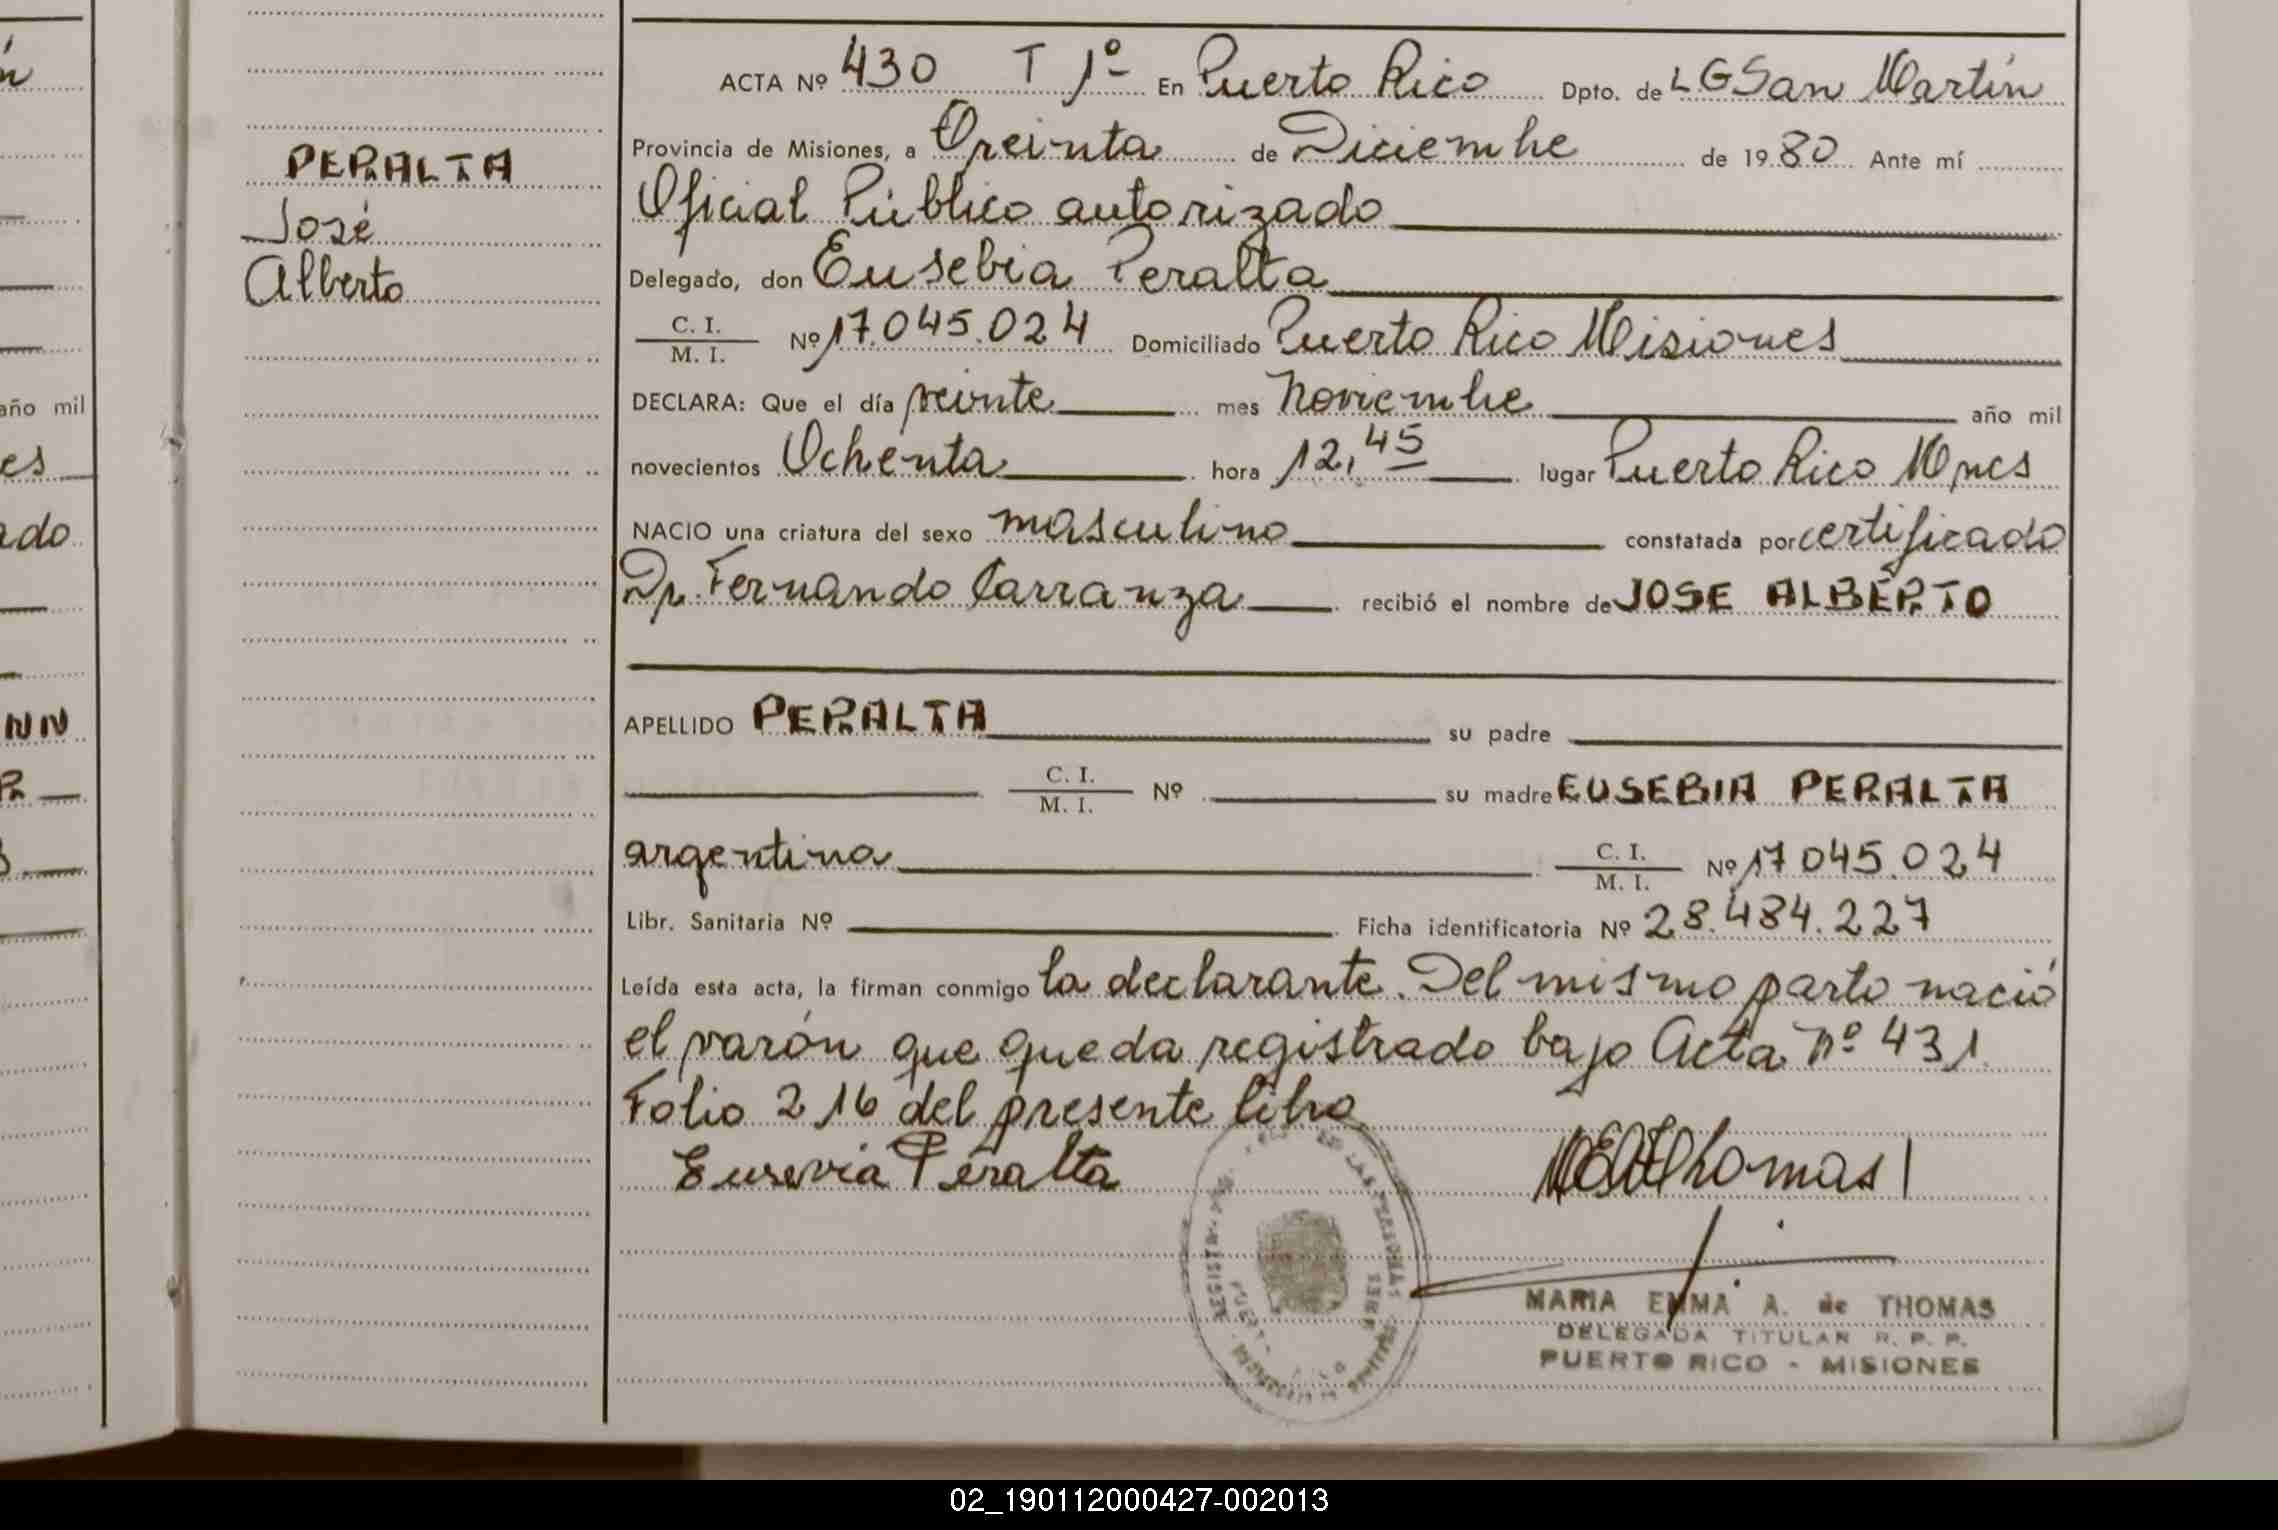 PERALTA
José
Alberto
ACTA Nº 430 T 1º En Puerto Rico Dpto. de L G San Martín
Provincia de Misiones, a Treinta de Diciembre de 1980 Ante mí
Oficial Público autorizado
Delegado, don Eusebia Peralta
C. I.
M. I. Nº 17.045.024 Domiciliado Puerto Rico Misiones
DECLARA: Que el día veinte mes Noviembre año mil
novecientos Ochenta hora 12,45 lugar Puerto Rico Mnes
NACIO una criatura del sexo masculino constatada por certificado
Dr. Fernando Carranza recibió el nombre de JOSE ALBERTO
APELLIDO PERALTA su padre
C. I.
M. I. Nº su madre EUSEBIA PERALTA
argentina C. I.
M. I. Nº 17 045.024
Libr. Sanitaria Nº Ficha identificatoria Nº 28.484.227
Leída esta acta, la firman conmigo la declarante. Del mismo parto nació
el varón que queda registrado bajo Acta Nº 431
Folio 216 del presente libro
Eusevia Peralta
Thomas
MARIA EMMA A. de THOMAS
DELEGADA TITULAR R. P. P.
PUERTO RICO - MISIONES
año mil
es
ado
NN
02_190112000427-002013